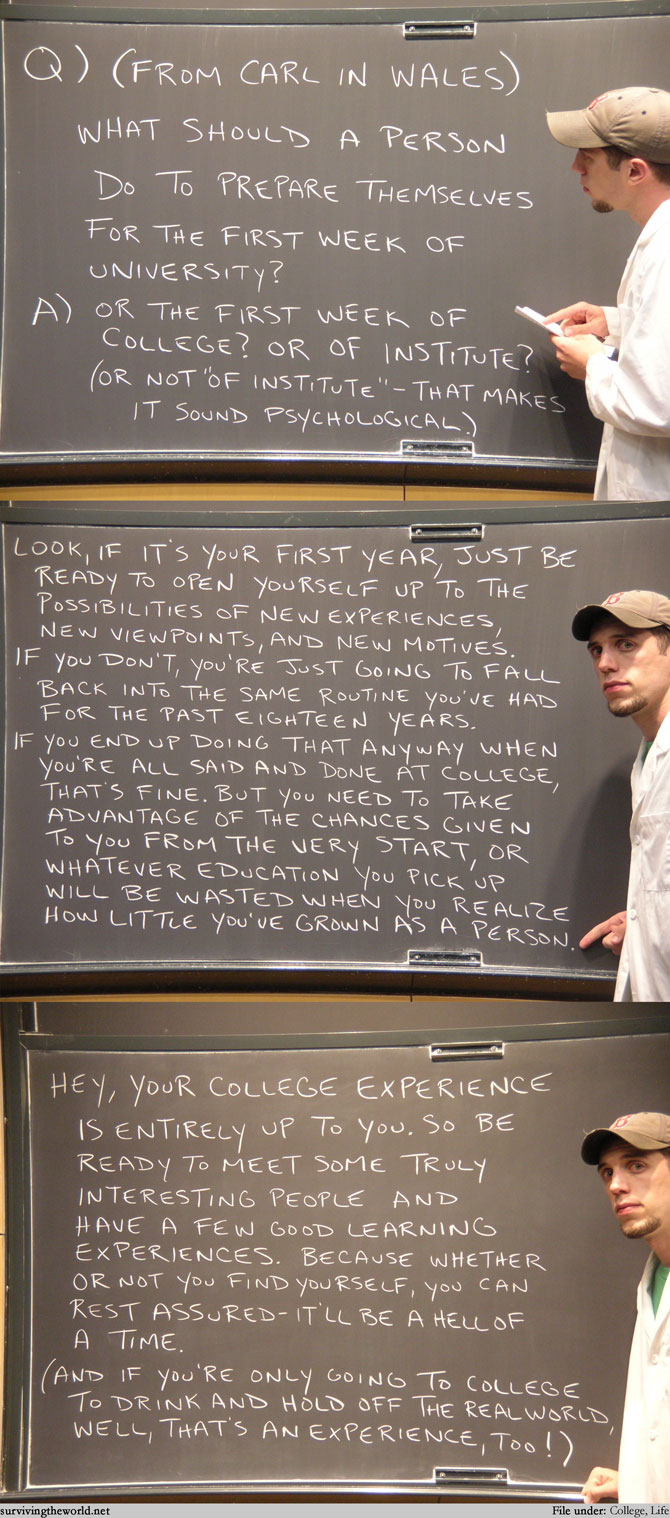 Q) (FROM CARL IN WALES)
WHAT SHOULD A PERSON
DO TO PREPARE THEMSELVES
FOR THE FIRST WEEK OF
UNIVERSITY?
A) OR THE FIRST WEEK OF
COLLEGE? OR OF INSTITUTE?
(OR NOT "OF INSTITUTE" - THAT MAKES
IT SOUND PSYCHOLOGICAL.)
LOOK, IF IT'S YOUR FIRST YEAR, JUST BE
READY TO OPEN YOURSELF UP TO THE
POSSIBILITIES OF NEW EXPERIENCES,
NEW VIEWPOINTS, AND NEW MOTIVES.
IF YOU DON'T, YOU'RE JUST GOING TO FALL
BACK INTO THE SAME ROUTINE YOU'VE HAD
FOR THE PAST EIGHTEEN YEARS.
IF YOU END UP DOING THAT ANYWAY WHEN
YOU'RE ALL SAID AND DONE AT COLLEGE,
THAT'S FINE. BUT YOU NEED TO TAKE
ADVANTAGE OF THE CHANCES GIVEN
TO YOU FROM THE VERY START, OR
WHATEVER EDUCATION YOU PICK UP
WILL BE WASTED WHEN YOU REALIZE
HOW LITTLE YOU'VE GROWN AS A PERSON.
HEY, YOUR COLLEGE EXPERIENCE
IS ENTIRELY UP TO YOU. SO BE
READY TO MEET SOME TRULY
INTERESTING PEOPLE AND
HAVE A FEW GOOD LEARNING
EXPERIENCES. BECAUSE WHETHER
OR NOT YOU FIND YOURSELF, YOU CAN
REST ASSURED - IT'LL BE A HELL OF
A TIME.
(AND IF YOU'RE ONLY GOING TO COLLEGE
TO DRINK AND HOLD OFF THE REAL WORLD,
WELL, THAT'S AN EXPERIENCE, TOO!)
survivingtheworld.net
File under: College, Life
B